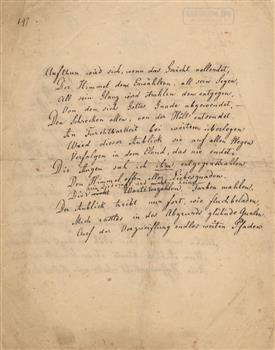 147
Aufthun wird sich, wenn das Gericht vollendet,
Der Himmel den Erwählten, all sein Segen,
All sein Glanz wird strahlen dem entgegen,
Von dem sich Gottes Gnade abgewendet, –
Den Schrecken allen, von der Höll entsendet
An Furchtbarkeit bei weitem überlegen
Wird dieser Anblick sie auf allen Wegen
Verfolgen in dem Elend, das nie endet.
Die Augen sah ich ihm entgegenstrahlen
Den Himmel offen, aller Liebesgnaden.
Die nicht Farben mahlen,
Der Anblick treibt nun fort, wie fluchbeladen
Mich rastlos in des Abgrunds glühnde Qualen
Auf der Verzweiflung endlos weiten Pfaden